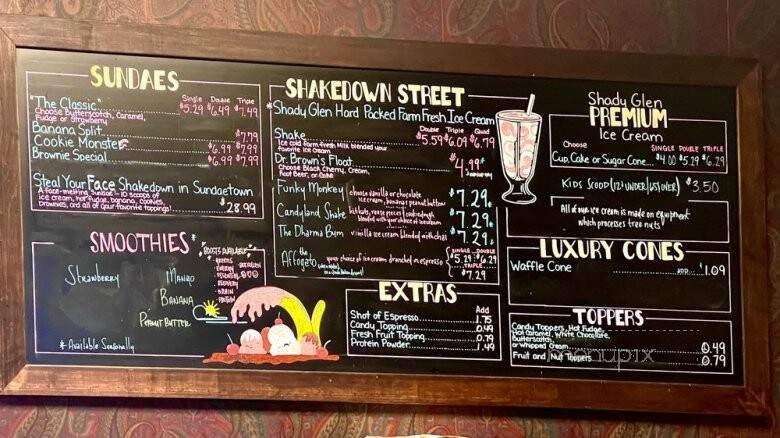 SUNDAES
Single Double Triple
"The Classic" $5.29 $6.49 $7.49
Choose Butterscotch, Caramel,
Fudge or Strawberry
Banana Split $7.79
Cookie Monster $6.99 $7.99
Brownie Special $6.99 $7.99
Steal Your Face Shakedown in Sundaetown
A face-melting Sundae - 10 scoops of
ice cream, hot fudge, banana, cookies,
brownies, and all of your favorite toppings! $28.99
SMOOTHIES*
Strawberry
Mango
Banana
Peanut Butter
Boosts Available
Greens
Energy
Brain
Protein
* Available Seasonally
SHAKEDOWN STREET
*Shady Glen Hard Packed Farm Fresh Ice Cream
Double Triple Quad
Shake $5.59 $6.09 $6.79
Ice cold farm fresh Milk blended your
favorite Ice Cream
Dr. Brown's Float $4.99*
Choose Black Cherry, Cream,
Root Beer, or Coke
Funky Monkey choose vanilla or chocolate
ice cream, banana, peanut butter $7.29
Candyland Shake $7.29
The Dharma Bum vanilla ice cream blended with chai $7.29
Single Double
The Affogato your choice of ice cream drenched in espresso $5.29 $6.29
Triple
$7.29
EXTRAS
Add
Shot of Espresso 1.75
Candy Topping 0.49
Fresh Fruit Topping 0.79
Protein Powder 1.49
Shady Glen
PREMIUM
Ice Cream
Choose SINGLE DOUBLE TRIPLE
Cup, Cake or Sugar Cone $4.00 $5.29 $6.29
Kids Scoop (12 & under/65 & over) $3.50
All of our ice cream is made on equipment
which processes tree nuts
LUXURY CONES
Waffle Cone ADD $1.09
TOPPERS
Candy Toppers, Hot Fudge,
Hot Caramel, White Chocolate,
Butterscotch,
or Whipped Cream 0.49
Fruit and Nut Toppers 0.79